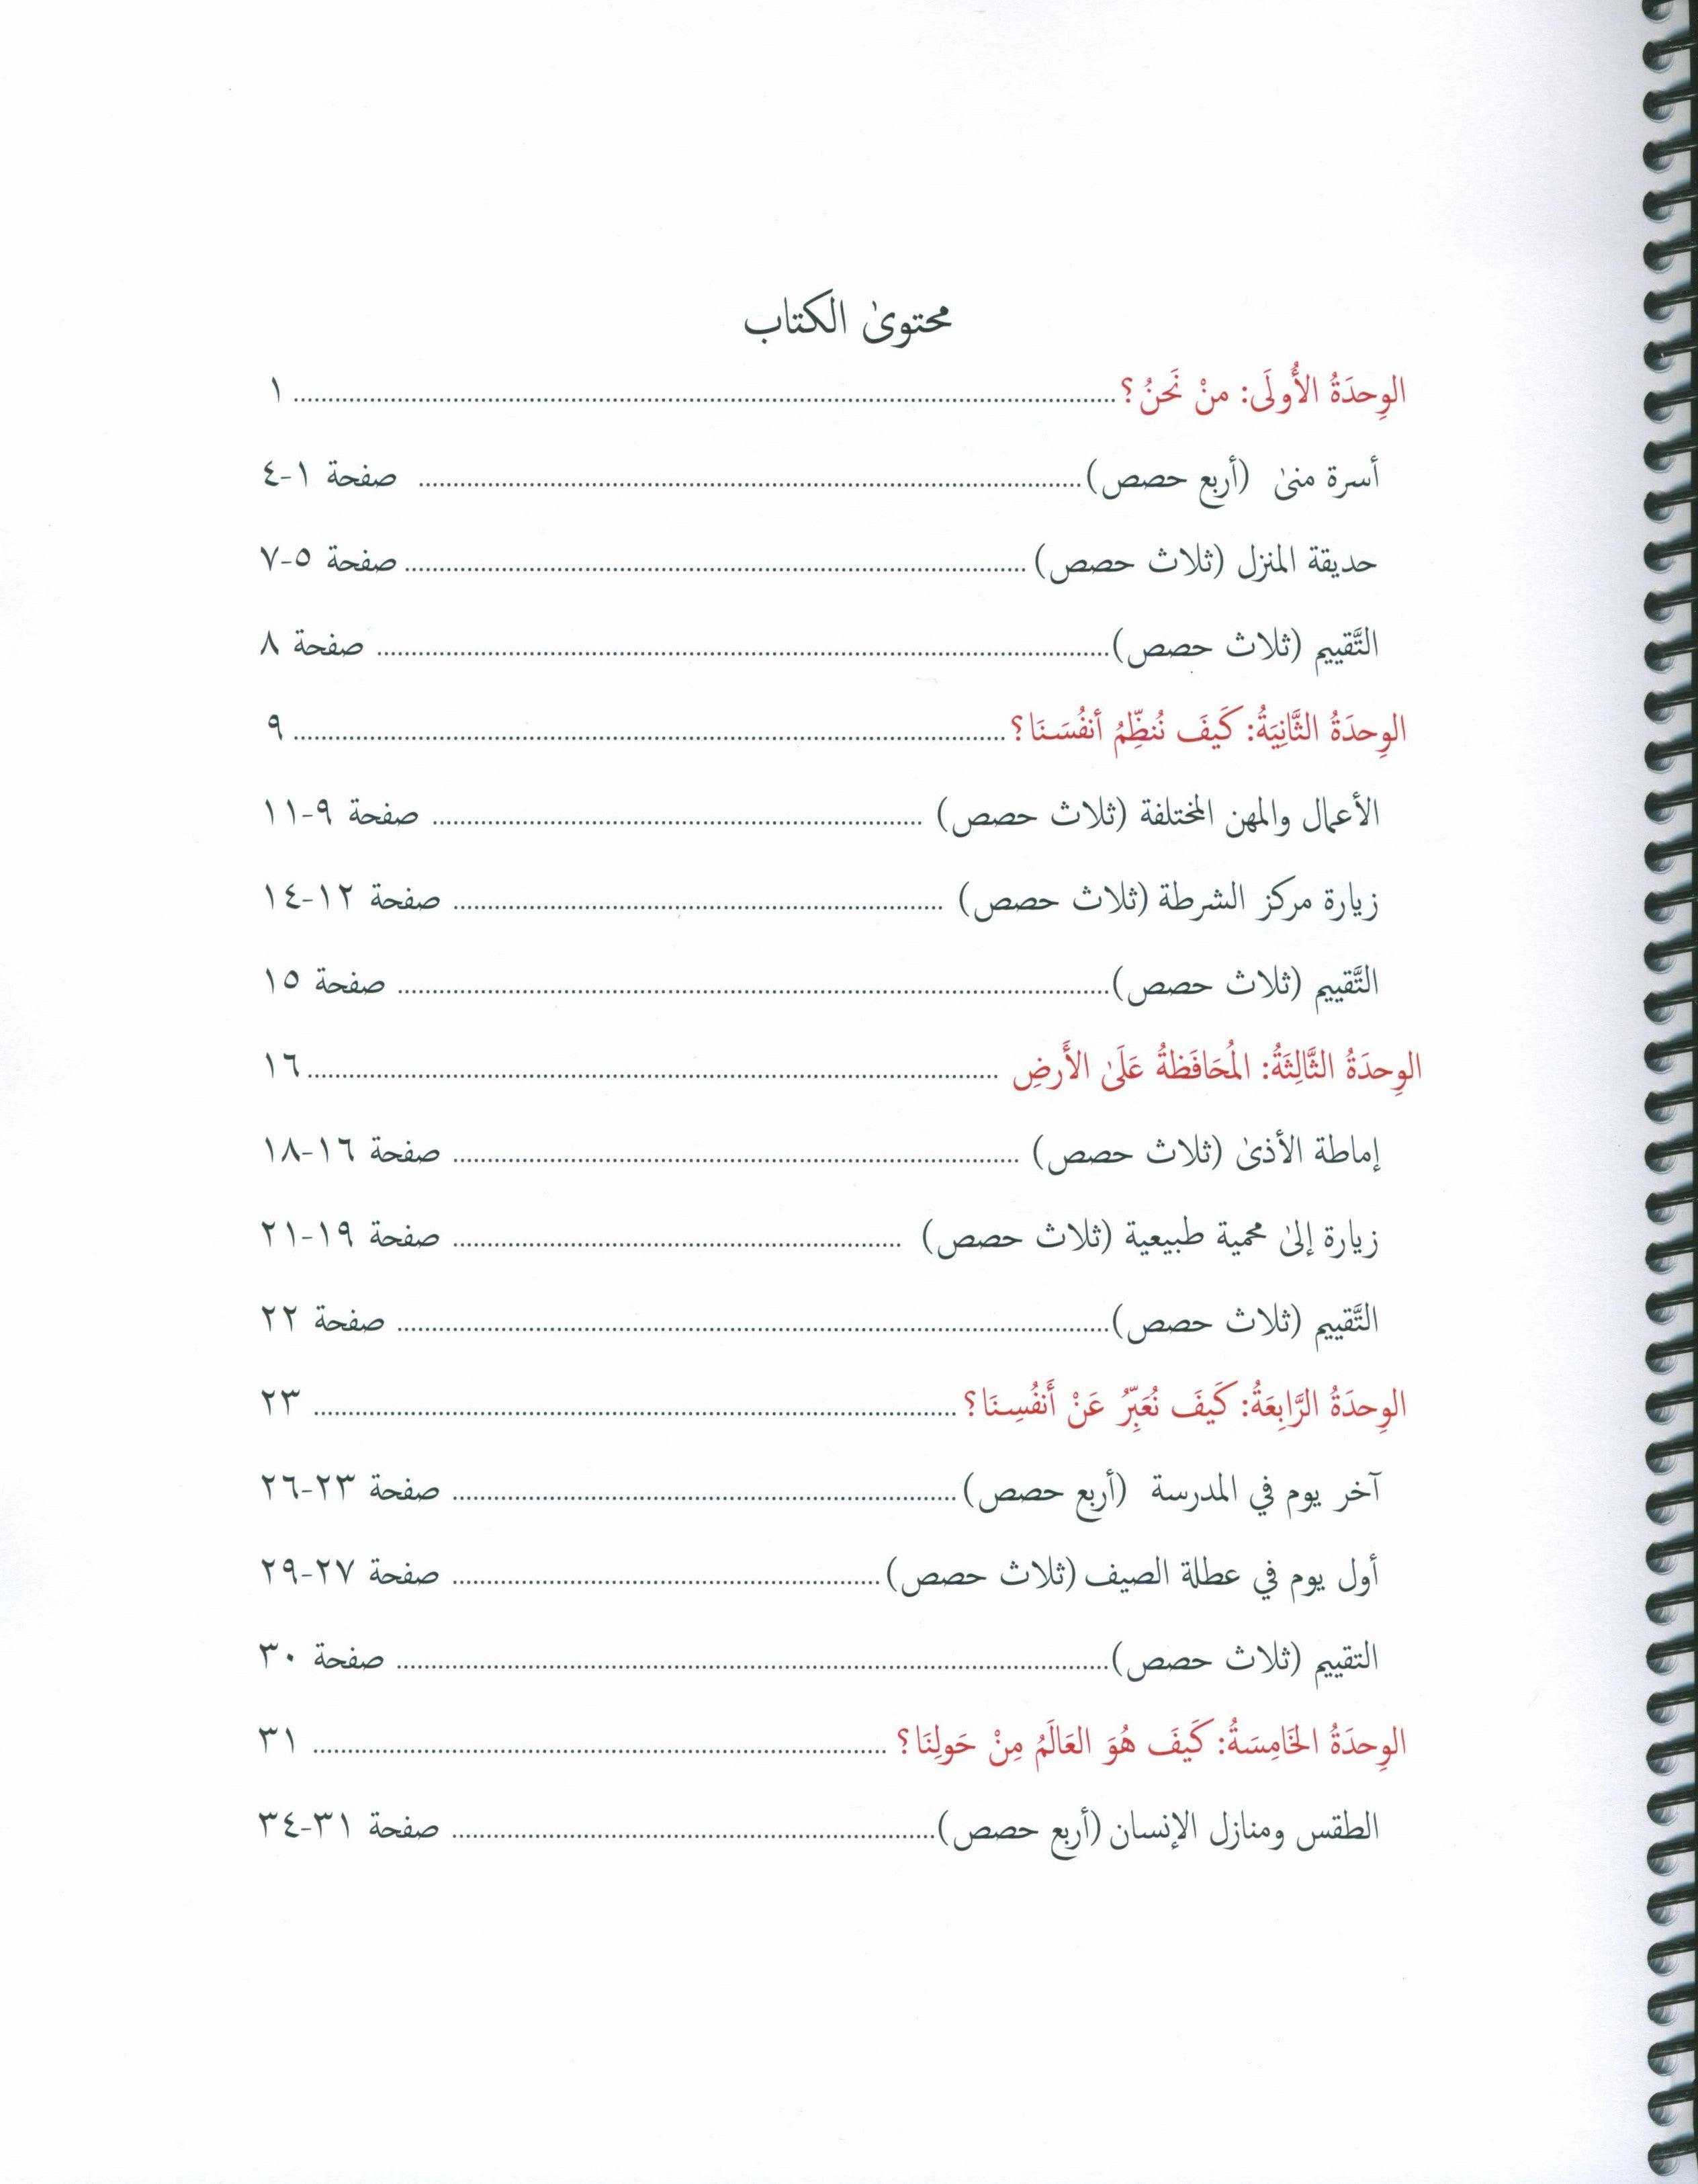 محتوىٰ الكتاب
الوِحدَةُ الأُولَى: منْ نَحنُ؟ ........ ١
أسرة منىٰ (أربع حصص) ........ صفحة ١-٤
حديقة المنزل (ثلاث حصص) ........ صفحة ٥-٧
التَّقييم (ثلاث حصص) ........ صفحة ٨
الوِحدَةُ الثَّانِيَةُ: كَيفَ نُنظِّمُ أنفُسَنَا؟ ........ ٩
الأعمال والمهن المختلفة (ثلاث حصص) ........ صفحة ٩-١١
زيارة مركز الشرطة (ثلاث حصص) ........ صفحة ١٢-١٤
التَّقييم (ثلاث حصص) ........ صفحة ١٥
الوِحدَةُ الثَّالِثَةُ: المُحَافَظةُ عَلَىٰ الأَرضِ ........ ١٦
إماطة الأذىٰ (ثلاث حصص) ........ صفحة ١٦-١٨
زيارة إلىٰ محمية طبيعية (ثلاث حصص) ........ صفحة ١٩-٢١
التَّقييم (ثلاث حصص) ........ صفحة ٢٢
الوِحدَةُ الرَّابِعَةُ: كَيفَ نُعَبِّرُ عَنْ أَنفُسِنَا؟ ........ ٢٣
آخر يوم في المدرسة (أربع حصص) ........ صفحة ٢٣-٢٦
أول يوم في عطلة الصيف (ثلاث حصص) ........ صفحة ٢٧-٢٩
التقييم (ثلاث حصص) ........ صفحة ٣٠
الوِحدَةُ الخَامِسَةُ: كَيفَ هُوَ العَالَمُ مِنْ حَولِنَا؟ ........ ٣١
الطقس ومنازل الإنسان (أربع حصص) ........ صفحة ٣١-٣٤